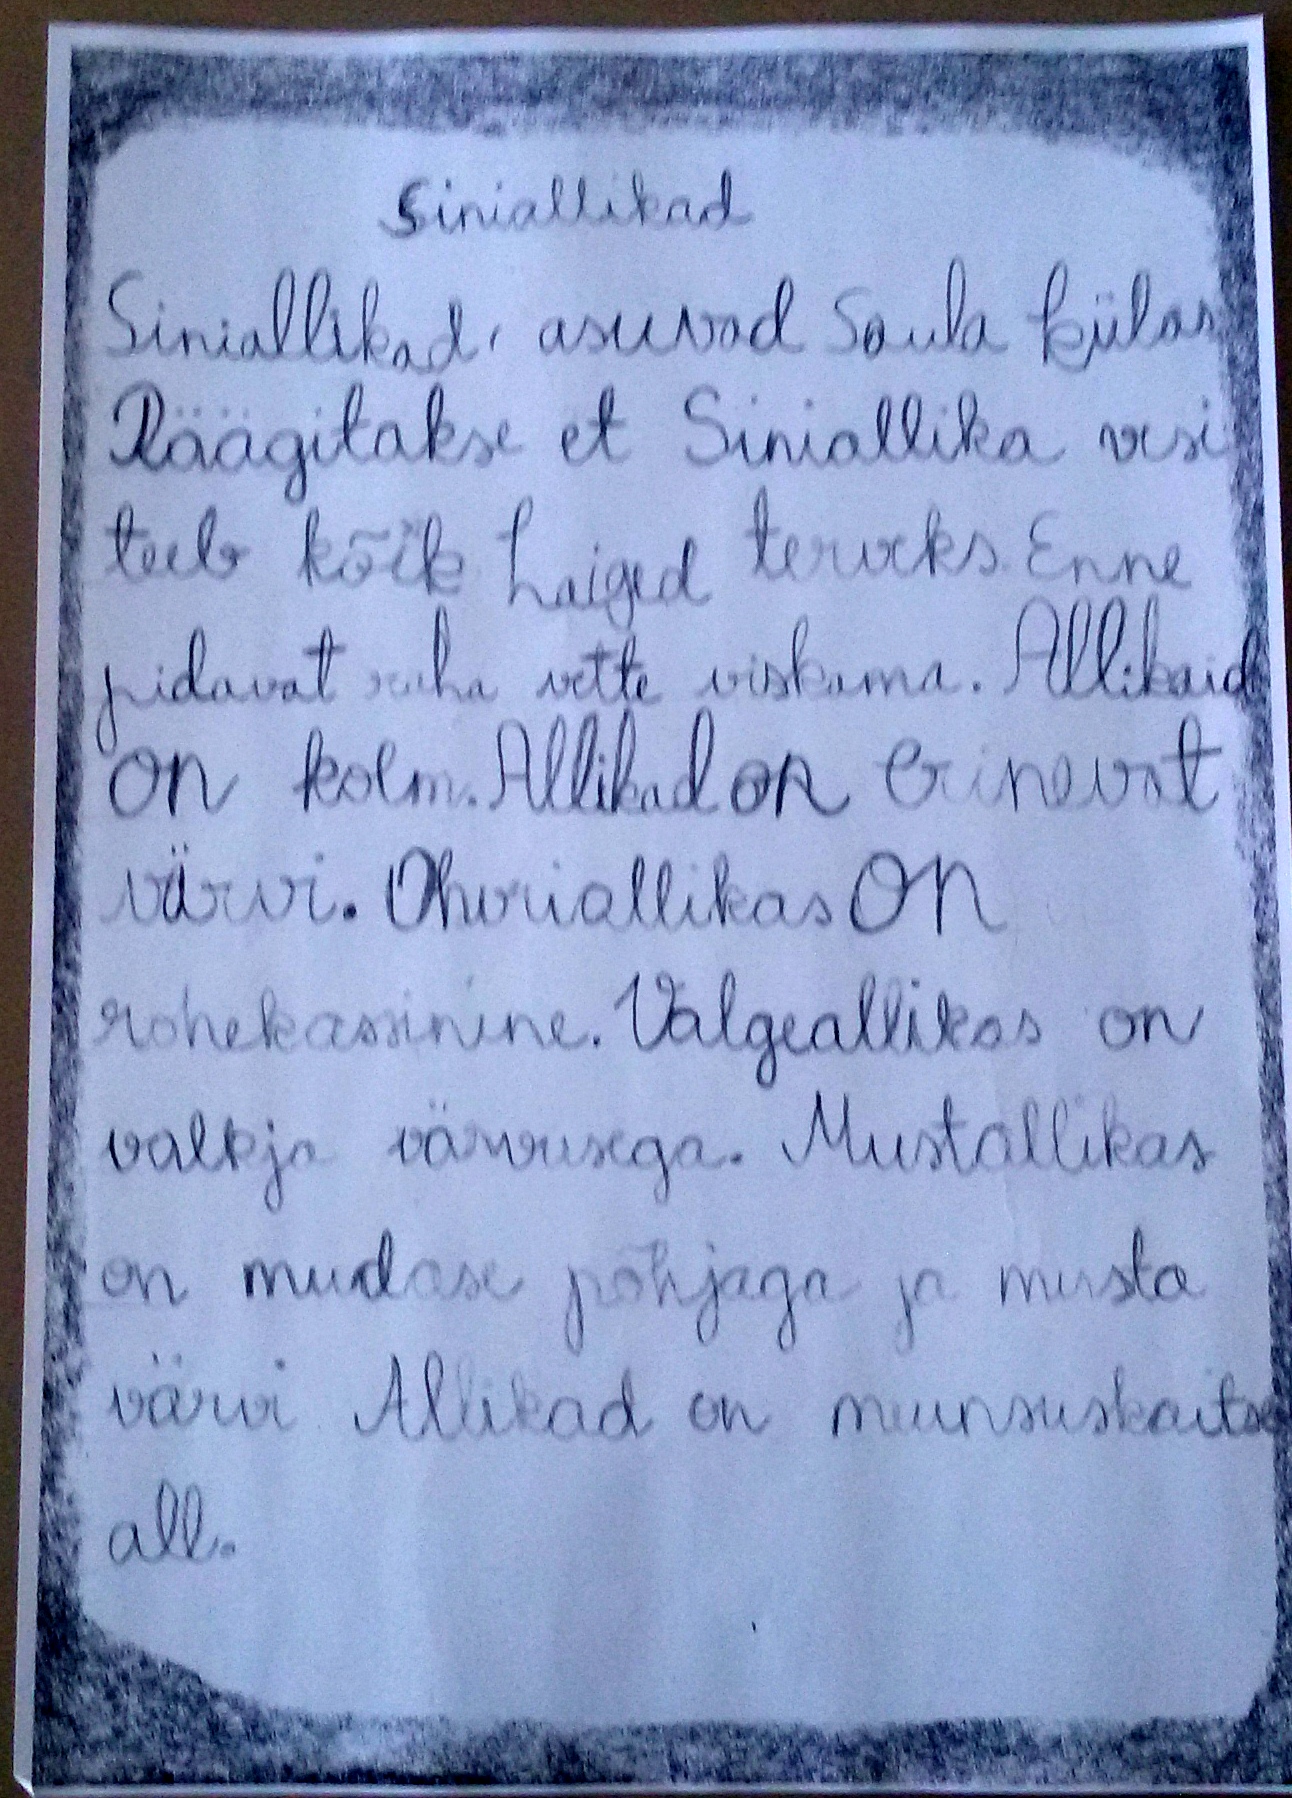 Siniallikad
Siniallikad, asuvad Saula külas
Räägitakse et Siniallika vesi
teeb kõik haiged terveks. Enne
pidavat raha vette viskama. Allikaid
on kolm. Allikad on erinevat
värvi. Ohvriallikas on
rohekassinine. Valgeallikas on
valkja värvusega. Mustallikas
on mudase põhjaga ja musta
värvi Allikad on muinsuskaitse
all.